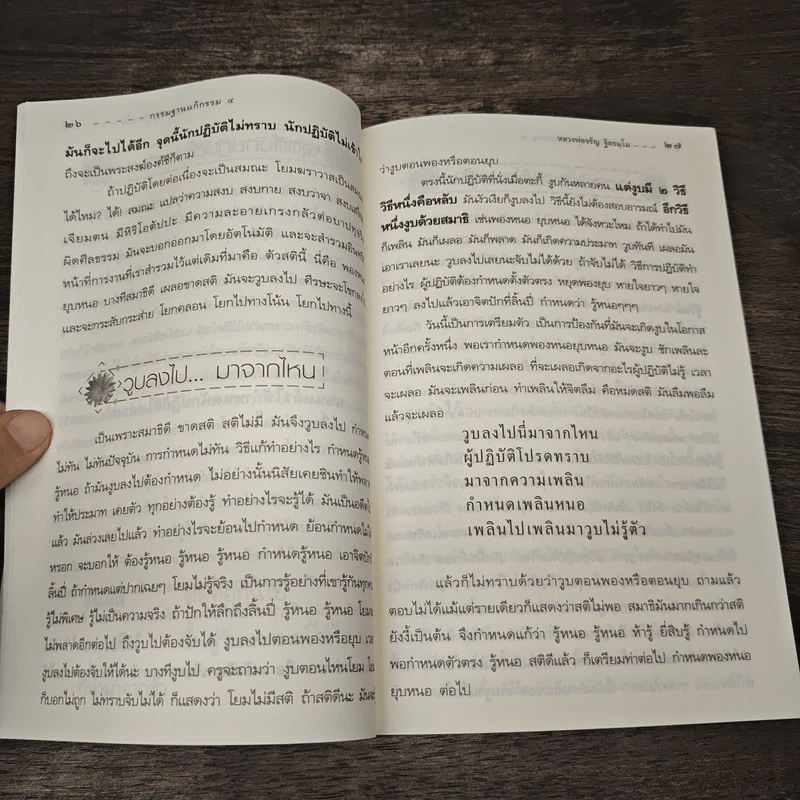 ๒๖ ------ กรรมฐานแก้กรรม ๔
มันก็จะไปได้อีก จุดนี้นักปฏิบัติไม่ทราบ นักปฏิบัติไม่เข้าใ
ถึงจะเป็นพระสงฆ์องค์ชีก็ตาม
ถ้าปฏิบัติโดยต่อเนื่องจะเป็นสมณะ โยมฆราวาสเป็นสมณะ
ได้ไหม? ได้! สมณะ แปลว่าความสงบ สงบกาย สงบวาจา สงบเสงี่
เจียมตน มีหิริโอตัปปะ มีความละอายเกรงกลัวต่อบาปทุจริ
ผิดศีลธรรม มันจะบอกออกมาโดยอัตโนมัติ และจะสำรวมอินท
หน้าที่การงานที่เราสำรวมไว้แต่เดิมที่มาคือ ตัวสตินี้ นี่คือ พองห
ยุบหนอ บางทีสมาธิดี เผลอขาดสติ มันจะวูบลงไป ศีรษะจะโขกลง
และจะกระสับกระส่าย โยกคลอน โยกไปทางโน้น โยกไปทางนี้
วูบลงไป... มาจากไหน
เป็นเพราะสมาธิดี ขาดสติ สติไม่มี มันจึงวูบลงไป กำหน
ไม่ทัน ไม่ทันปัจจุบัน การกำหนดไม่ทัน วิธีแก้ทำอย่างไร กำหนดรู้หน
รู้หนอ ถ้ามันงูบลงไปต้องกำหนด ไม่อย่างนั้นนิสัยเคยชินทำให้พลา
ทำให้ประมาท เคยตัว ทุกอย่างต้องรู้ ทำอย่างไรจะรู้ได้ มันเป็นอดีตไ
แล้ว มันล่วงเลยไปแล้ว ทำอย่างไรจะย้อนไปกำหนด ย้อนกำหนดไม่ไ
หรอก จะบอกให้ ต้องรู้หนอ รู้หนอ รู้หนอ กำหนดรู้หนอ เอาจิตปัก
ลิ้นปี่ ถ้ากำหนดแต่ปากเฉยๆ โยมไม่รู้จริง เป็นการรู้อย่างที่เขารู้กันทุกค
รู้ไม่พิเศษ รู้ไม่เป็นความจริง ถ้าปักให้ลึกถึงลิ้นปี่ รู้หนอ รู้หนอ โยม
ไม่พลาดอีกต่อไป ถึงวูบไปต้องจับได้ งูบลงไปตอนพองหรือยุบ เว
งูบลงไปต้องจับให้ได้นะ บางทีงูบไป ครูจะถามว่า งูบตอนไหนโยม โย
ก็บอกไม่ถูก ไม่ทราบจับไม่ได้ ก็แสดงว่า โยมไม่มีสติ ถ้าสติดีนะ มันจ
หลวงพ่อจรัญ ฐิตธมฺโม ---- ๒๗
ว่างูบตอนพองหรือตอนยุบ
ตรงนี้นักปฏิบัติที่นั่งเมื่อตะกี้ งูบกันหลายคน แต่งูบมี ๒ วิธี
วิธีหนึ่งคือหลับ มันงัวเงียก็งูบลงไป วิธีนี้ยังไม่ต้องสอบอารมณ์ อีกวิธี
หนึ่งงูบด้วยสมาธิ เช่นพองหนอ ยุบหนอ ได้จังหวะไหม ถ้าได้ทำไปมัน
ก็เพลิน มันก็เผลอ มันก็พลาด มันก็เกิดความประมาท วูบทันที เผลอมัน
เอาเราเลยนะ วูบลงไปเลยนะจับไม่ได้ด้วย ถ้าจับไม่ได้ วิธีการปฏิบัติทำ
อย่างไร ผู้ปฏิบัติต้องกำหนดตั้งตัวตรง หยุดพองยุบ หายใจยาวๆ หายใจ
ยาวๆ ลงไปแล้วเอาจิตปักที่ลิ้นปี่ กำหนดว่า รู้หนอๆๆๆ
วันนี้เป็นการเตรียมตัว เป็นการป้องกันที่มันจะเกิดงูบในโอกาส
หน้าอีกครั้งหนึ่ง พอเรากำหนดพองหนอยุบหนอ มันจะงูบ ชักเพลินละ
ตอนที่เพลินจะเกิดความเผลอ ที่จะเผลอเกิดจากอะไรผู้ปฏิบัติไม่รู้ เวลา
จะเผลอ มันจะเพลินก่อน ทำเพลินให้จิตลืม คือหมดสติ มันลืมพอลืม
แล้วจะเผลอ
วูบลงไปนี่มาจากไหน
ผู้ปฏิบัติโปรดทราบ
มาจากความเพลิน
กำหนดเพลินหนอ
เพลินไปเพลินมาวูบไม่รู้ตัว
แล้วก็ไม่ทราบด้วยว่าวูบตอนพองหรือตอนยุบ ถามแล้ว
ตอบไม่ได้แม้แต่รายเดียวก็แสดงว่าสติไม่พอ สมาธิมันมากเกินกว่าสติ
ยังงี้เป็นต้น จึงกำหนดแก้ว่า รู้หนอ รู้หนอ ห้ารู้ ยี่สิบรู้ กำหนดไป
พอกำหนดตัวตรง รู้หนอ สติดีแล้ว ก็เตรียมท่าต่อไป กำหนดพองหนอ
ยุบหนอ ต่อไป